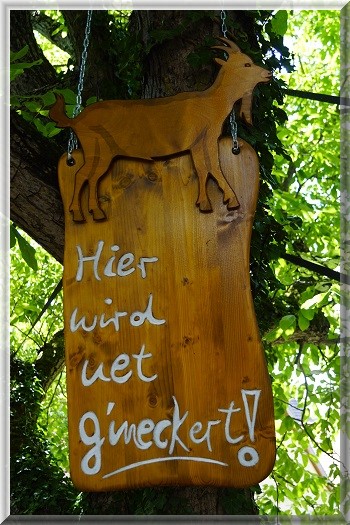 Hier
wird
net
g'meckert!